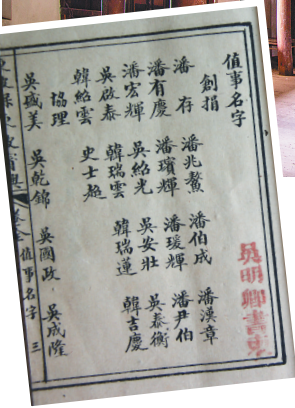 值事名字
創捐
潘存 潘兆鰲 潘伯成 潘漢章
潘有慶 潘璸輝 潘瑗輝 潘尹伯
潘宏輝 吳紹光 吳安壯 吳泰衡
吳啟泰 韓瑞雲 韓瑞蓮 韓吉慶
韓紹雲 史士超
協理
吳盛美 吳乾錦 吳國政 吳成隆
值事名字 三
吳明卿書